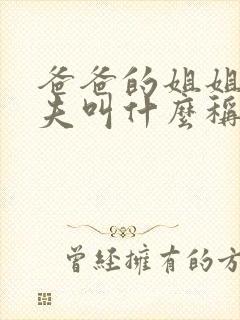 爸爸的姐姐
夫叫什麼稱
曾經擁有的方